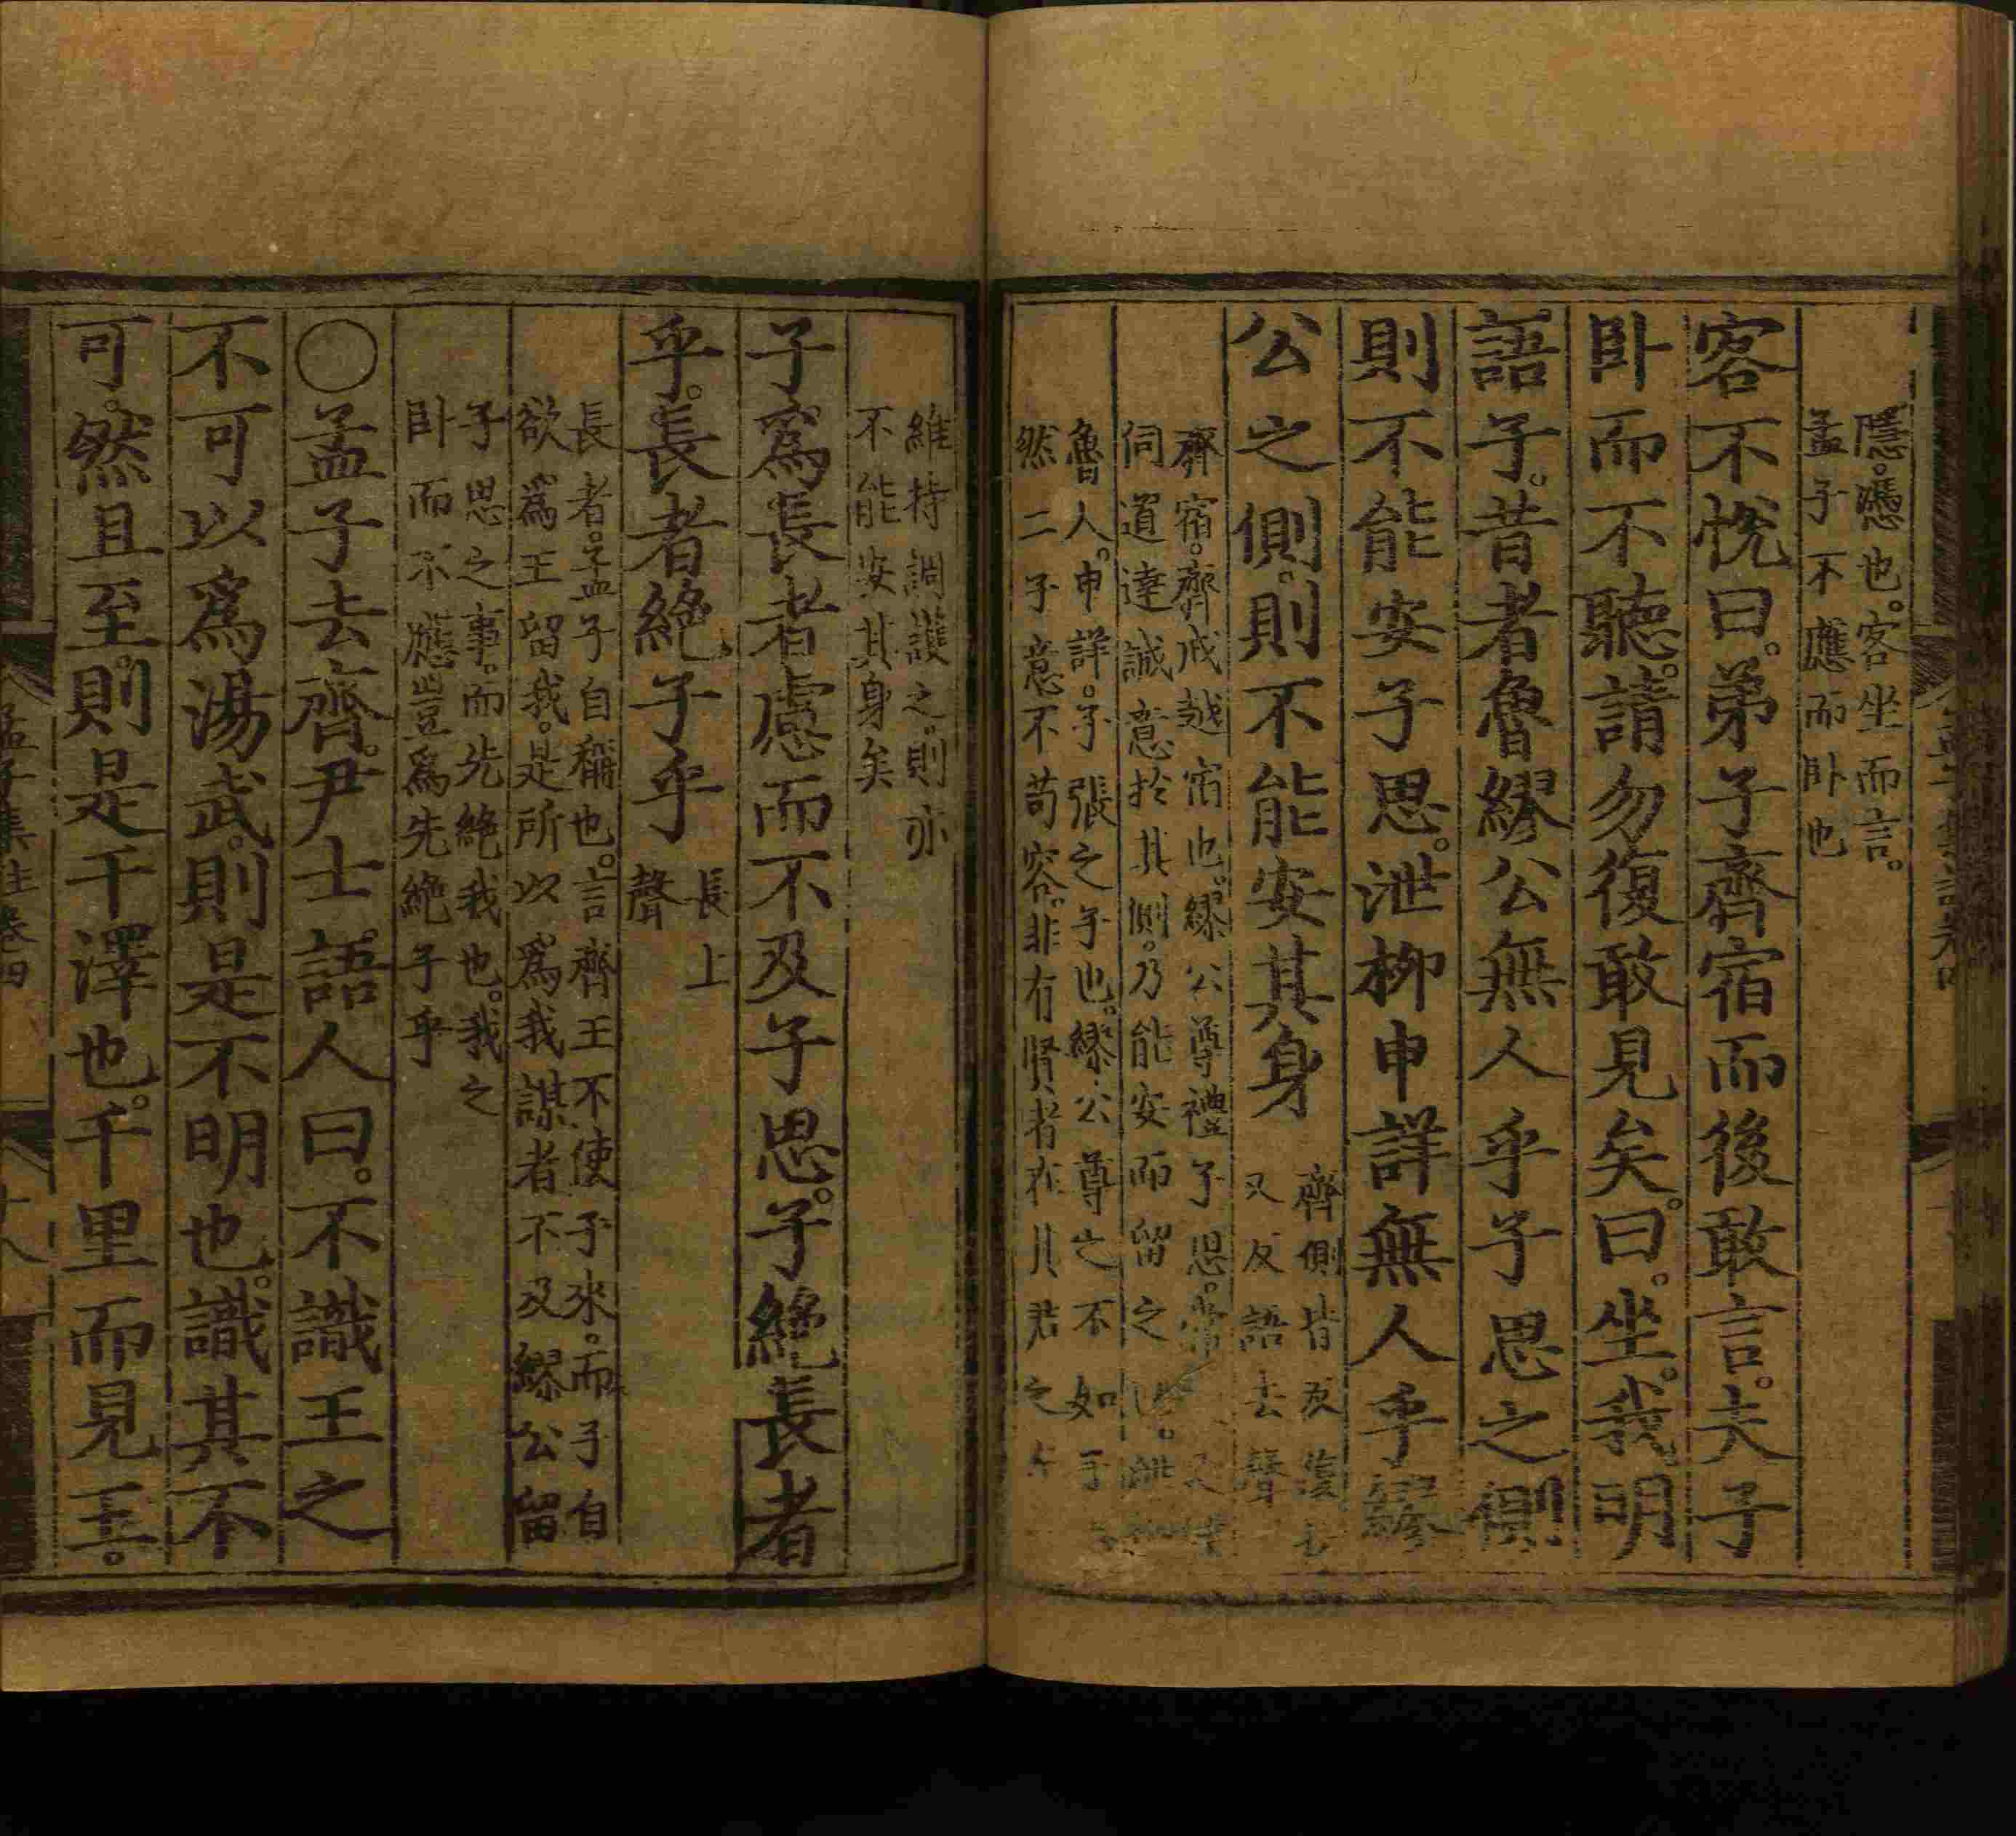 隱憑也。客坐而言。
孟子不應而卧也
客不悅曰。弟子齊宿而後敢言。夫子
卧而不聽。請勿復敢見矣。曰。坐。我明
語子。昔者魯繆公無人乎子思之側。
則不能安子思。泄柳申詳無人乎繆
公之側。則不能安其身
齊側皆反復
又反語去聲
齊宿。齊戒越宿也。繆公尊禮子思。常
伺道達誠意於其側。乃能安而留之也。泄
魯人。申詳。子張之子也。繆公尊之不如子
然二子意不苟容。非有賢者在其君之
維持調護之。則亦
不能安其身矣
子爲長者慮而不及子思。子絶長者
乎。長者絶子乎
長上
聲
長者。孟子自稱也。言齊王不使子來。而子自
欲爲王留我。是所以爲我謀者不及繆公留
子思之事。而先絶我也。我之
卧而不應豈爲先絶子乎
○孟子去齊。尹士語人曰。不識王之
不可以爲湯武。則是不明也。識其不
可。然且至。則是干澤也。千里而見王。
孟子集註卷四
十八